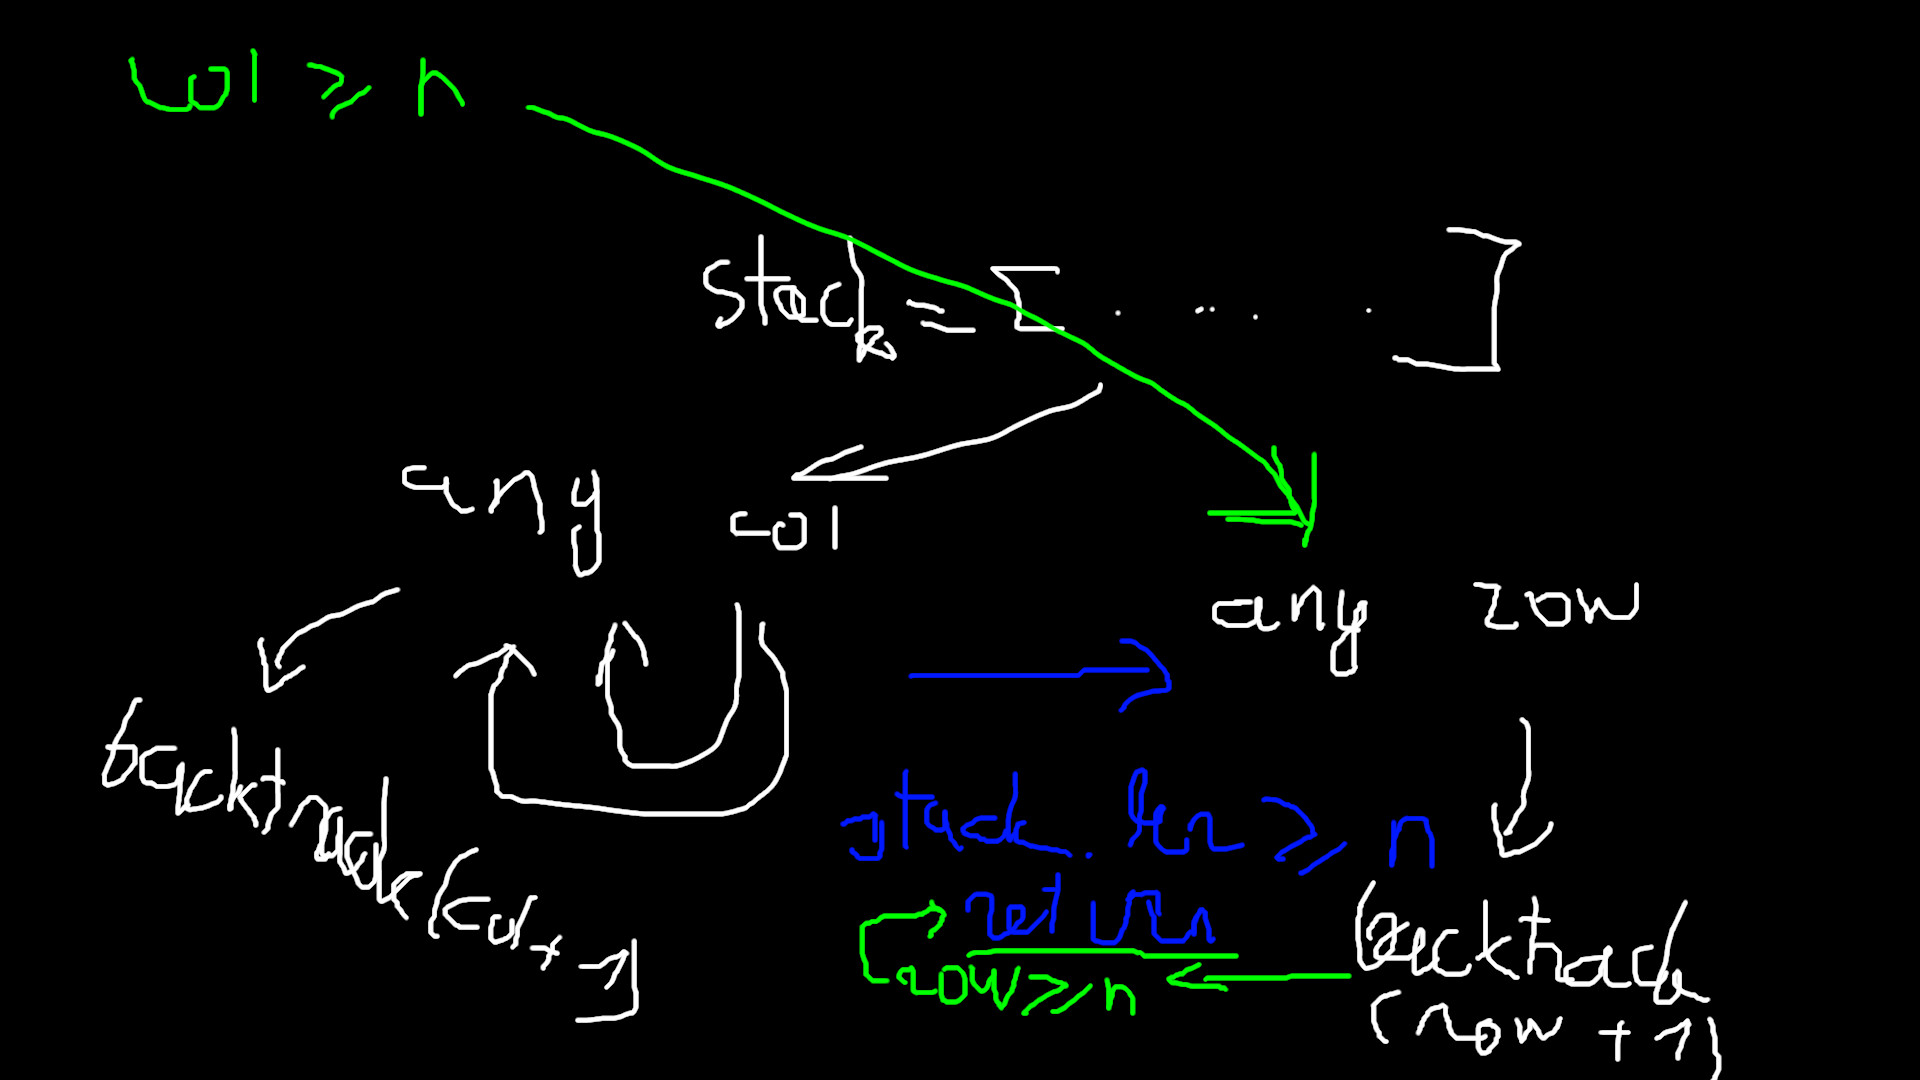 col ≥ n
stack = [ . .. . . ]
any col
any row
backtrack(col+1)
stack.len ≥ n
return
row ≥ n
backtrack
(row + 1)